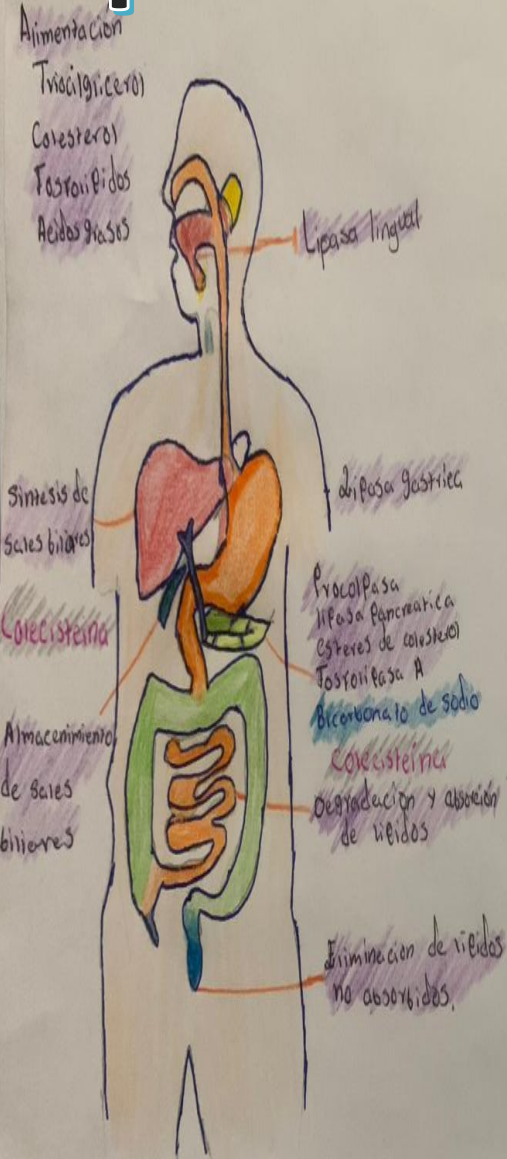 Alimentación
Triacilglicerol
Colesterol
Fosfolipidos
Acidos grasos
Lipasa lingual
Sintesis de
sales biliares
Lipasa gastrica
Colecisteina
Procolipasa
lipasa Pancreatica
esteres de colesterol
Fosfolipasa A
Bicarbonato de sodio
Colecisteina
Degradación y absorción
de lipidos
Almacenimiento
de sales
biliares
Eliminacion de lipidos
no absorbidos.